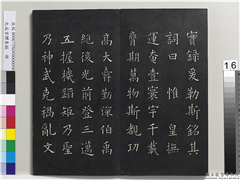 實錄爰勒斯銘其
詞曰惟皇撫
運奄壹寰宇千載
膺期萬物斯覩功
高大舜勤深伯禹
絕後光前登三邁
五握機蹈矩乃聖
乃神武克禍亂文
16